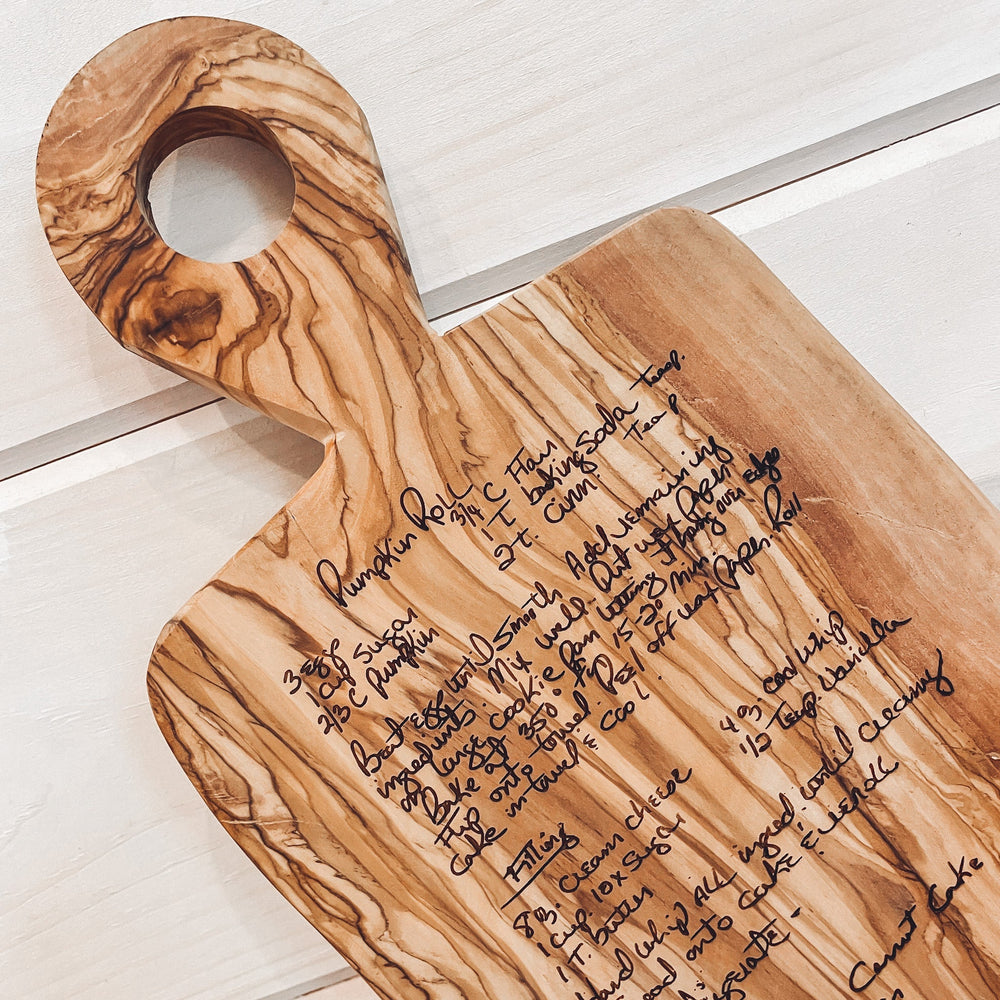 Pumpkin Roll
3 eggs 3/4 C Flau
1 cup sugar 1 T baking soda teasp.
2/3 C pumpkin 2 t. cinm. Teasp
Beat egg until smooth Add remaining
ingredients. Mix well Put wax paper
on large cookie pan letting it hang over edges
Bake at 350. for 15-20 min
Flip onto towel. Peel off wax paper. Roll
cake in towel & cool.
Filling
8 oz. cream cheese 4 oz. cool whip
1 cup. 10x sugar 1/2 Teasp. Vanilla
1 T. butter
Hand whip All ingred. until creamy
onto cake & reroll
Carrot Cake